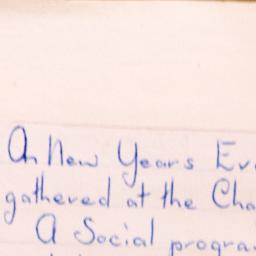 On New Years Ev
gathered at the Cha
A Social progra